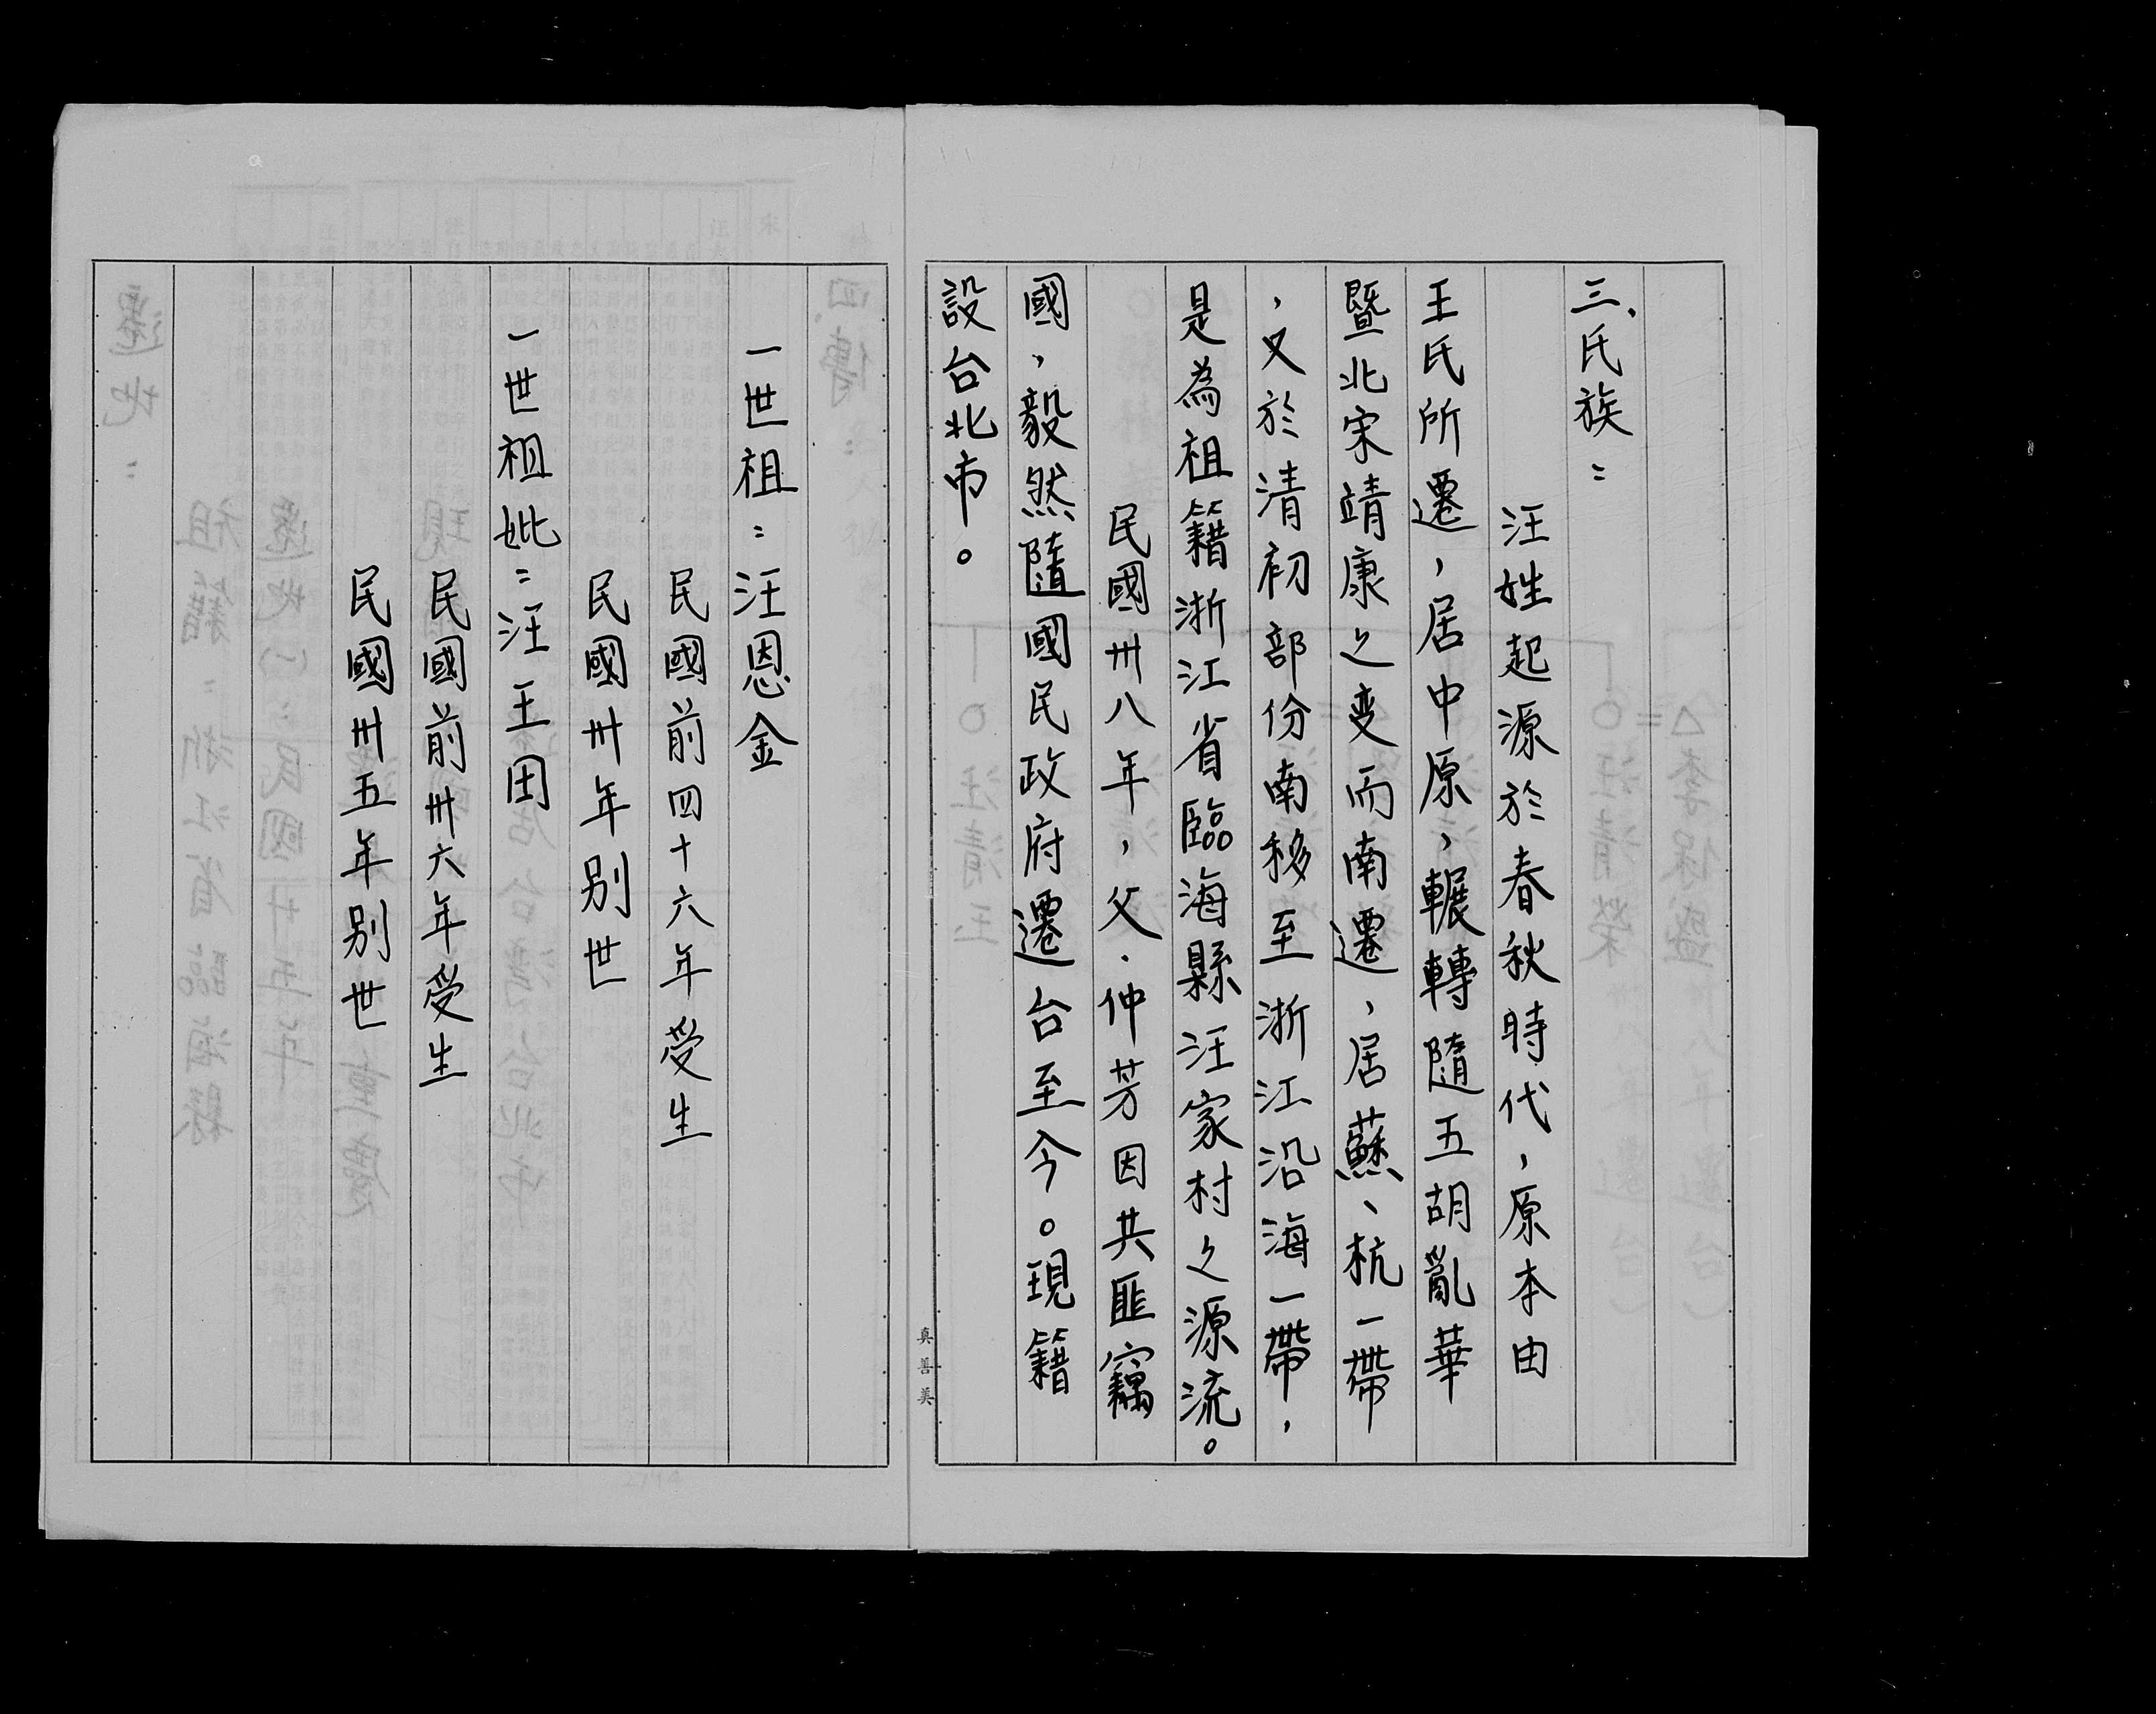 三、氏族：
汪姓起源於春秋時代，原本由
王氏所遷，居中原，輾轉隨五胡亂華
暨北宋靖康之变而南遷，居蘇、杭一帶
，又於清初部份南移至浙江沿海一帶，
是為祖籍浙江省臨海縣汪家村之源流。
民國卅八年，父．仲芳因共匪竊
國，毅然隨國民政府遷台至今。現籍
設台北市。
真善美
一世祖：汪恩金
民國前四十六年受生
民國卅年别世
一世祖妣：汪王囝
民國前卅六年受生
民國卅五年别世